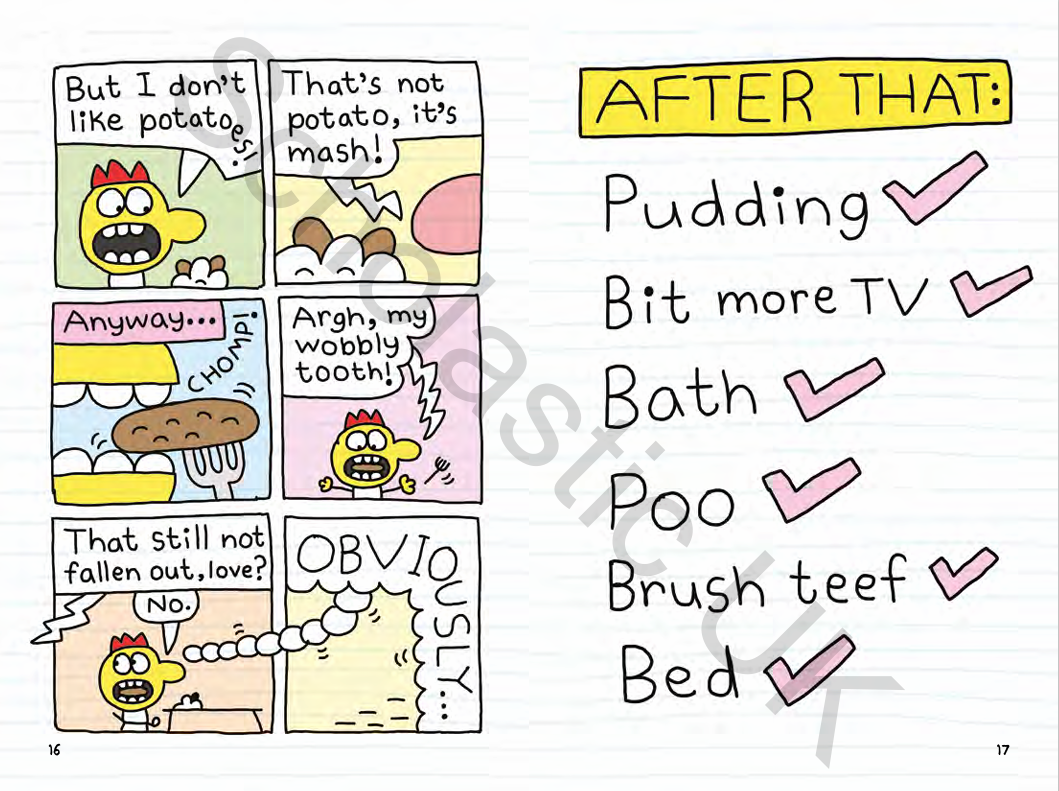 But I don't
like potatoes!
That's not
potato, it's
mash!
Anyway...
CHOMP!
Argh, my
wobbly
tooth!
That still not
fallen out, love?
No.
OBVIOUSLY...
16
AFTER THAT:
Pudding
Bit more TV
Bath
Poo
Brush teef
Bed
17
Scholastic UK